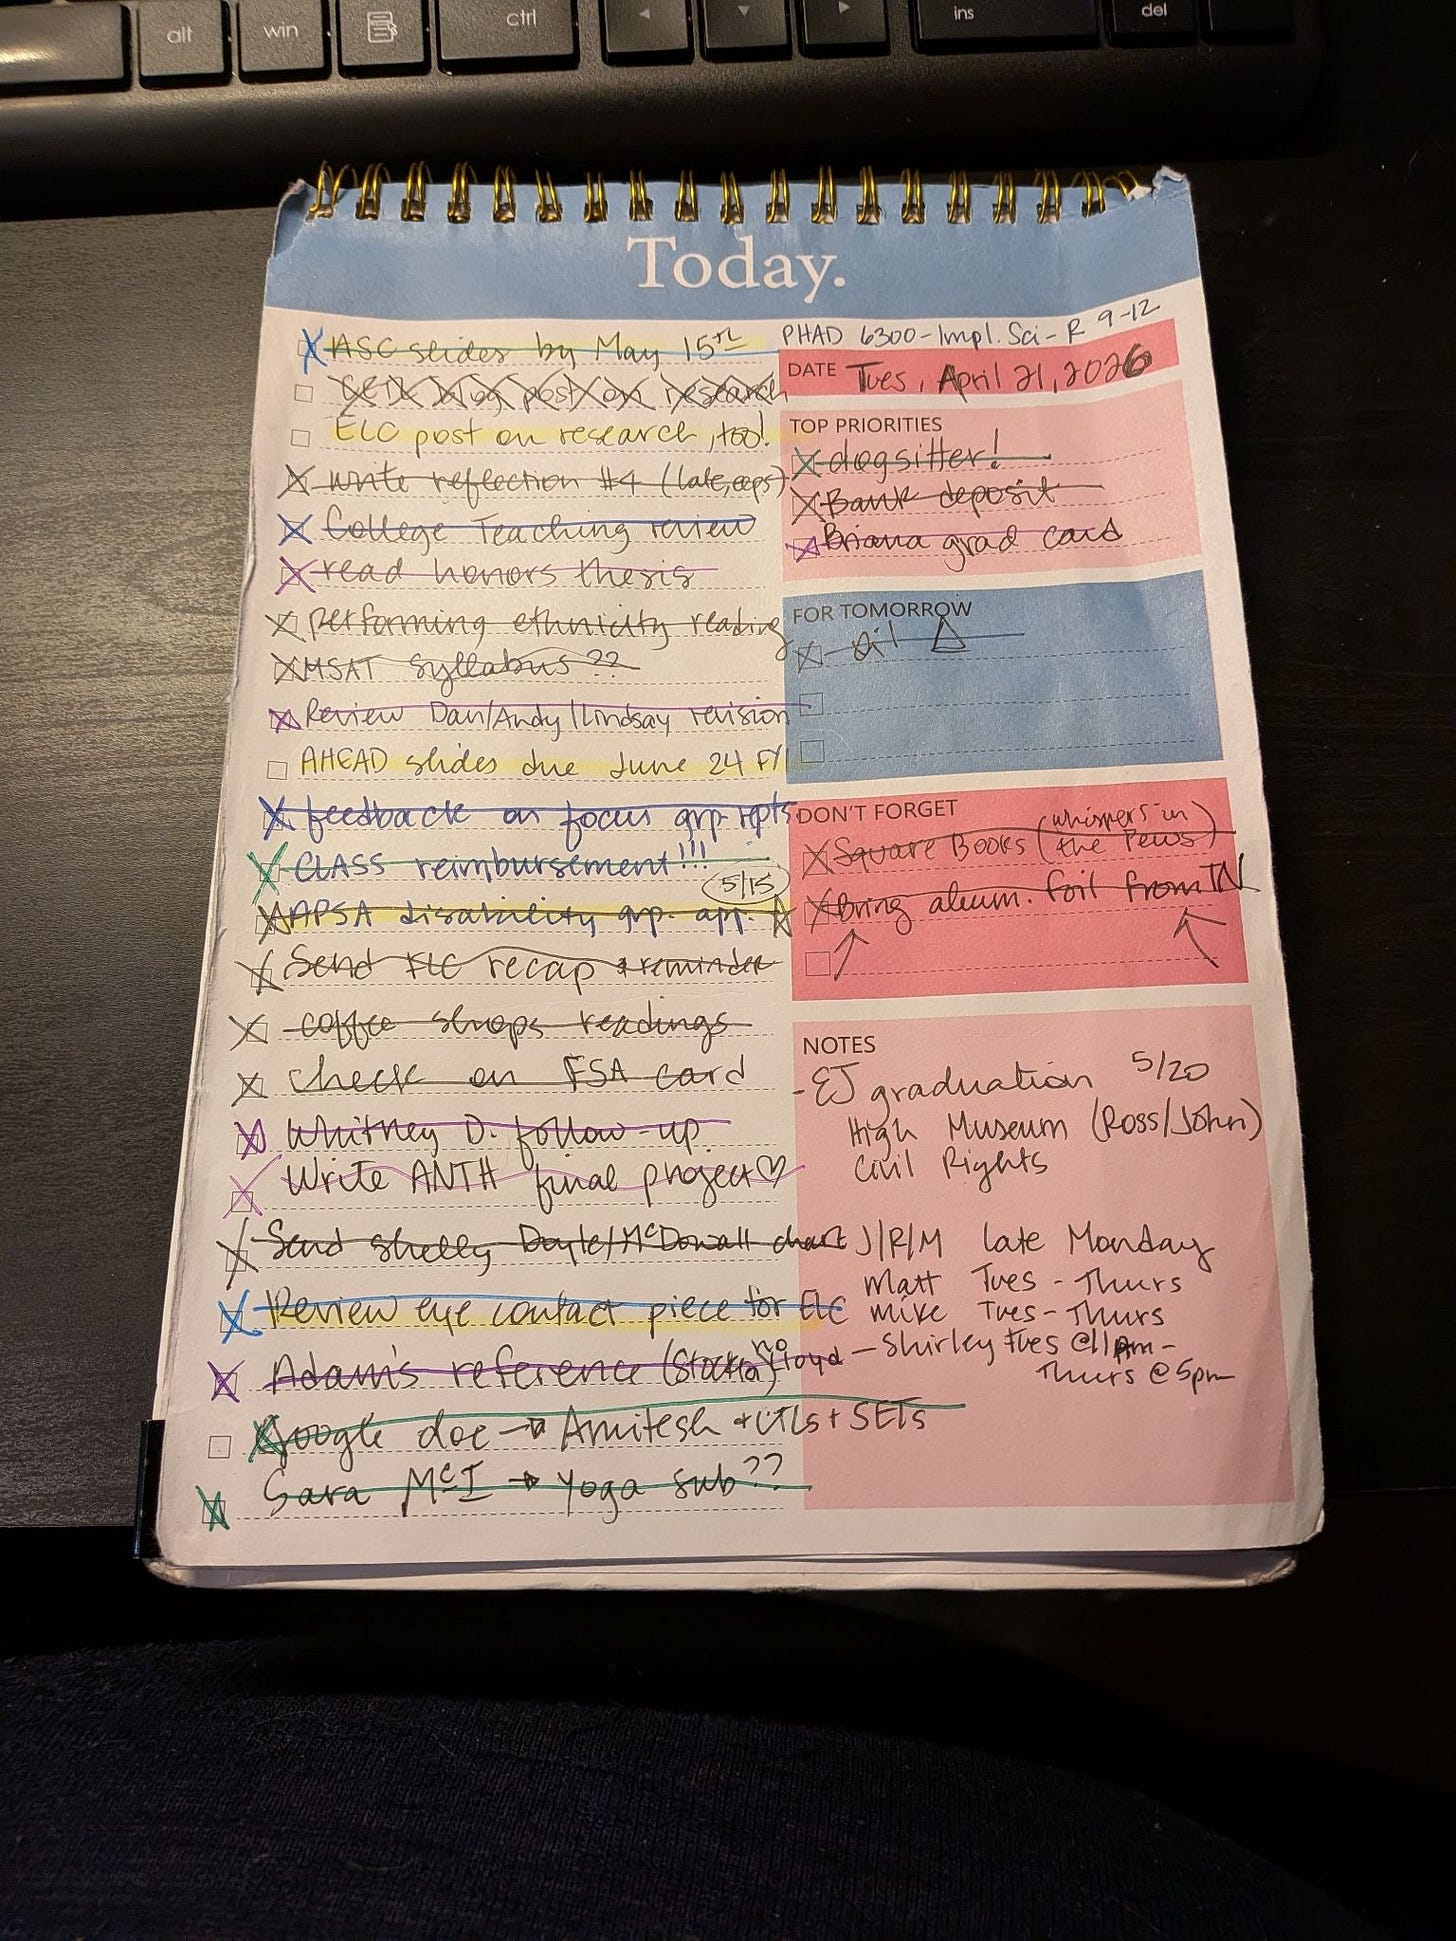 alt
win
ctrl
ins
del
Today.
ASC slides by May 15th
blog post on research
ELC post on research, too!
write reflection #4 (late, oops)
College Teaching review
read honors thesis
performing ethnicity reading
MSAT syllabus??
Review Dan/Andy/Lindsay revision
AHEAD slides due June 24 FYI
feedback on focus grp rpts
CLASS reimbursement!!!
5/15
APSA disability grp. app.
Send recap & reminder
coffee shops readings
check on FSA card
Whitney D. follow-up
Write ANTH final project ♡
Send Shelly Doyle/McDowall chart
Review eye contact piece for ELC
Adam's reference
no
Google doc → Amitesh + UTLs + SETs
Sara McI → Yoga sub??
PHAD 6300-Impl. Sci-R 9-12
DATE Tues, April 21, 2026
TOP PRIORITIES
dogsitter!
Bank deposit
Briana grad card
FOR TOMORROW
oil Δ
DON'T FORGET
Square Books (whispers in
the Pews)
Bring alum. foil from TN
NOTES
-EJ graduation 5/20
High Museum (Ross/John)
Civil Rights
J/R/M late Monday
Matt Tues - Thurs
Mike Tues - Thurs
- Shirley Tues @11am -
Thurs @5pm